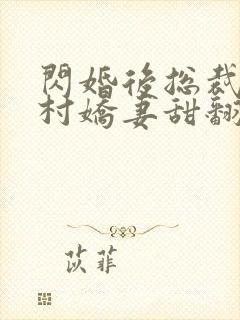 閃婚後總裁
村嬌妻甜翻
苡菲